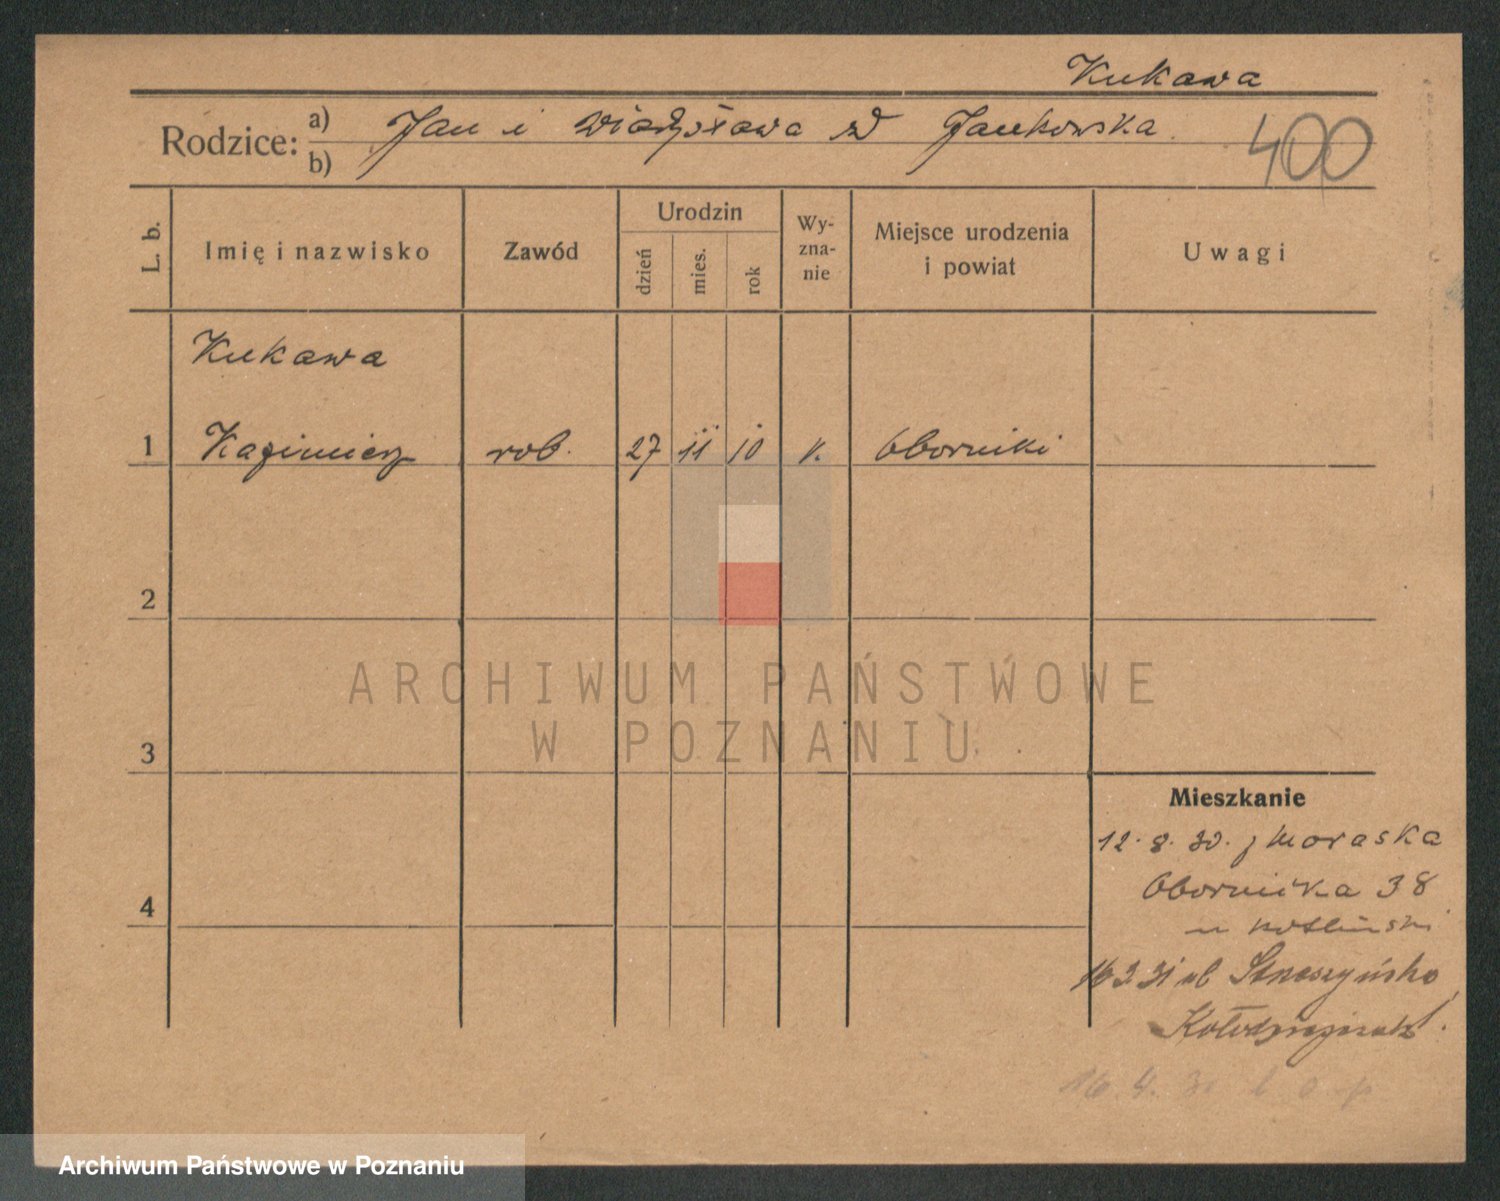 Kukawa
Rodzice: a) Jan i Władysława z d Jankowska
b)
400
L. b.
Imię i nazwisko
Zawód
Urodzin
dzień
mies.
rok
Wy-
zna-
nie
Miejsce urodzenia
i powiat
Uwagi
Kukawa
1 Kazimierz rob. 27 11 10 k. Oborniki
2
3
4
Mieszkanie
12. 8. 30. z Moraska
Obornicka 38
u
16 3 31 ul
16. 4. 31
ARCHIWUM PAŃSTWOWE
W POZNANIU
Archiwum Państwowe w Poznaniu